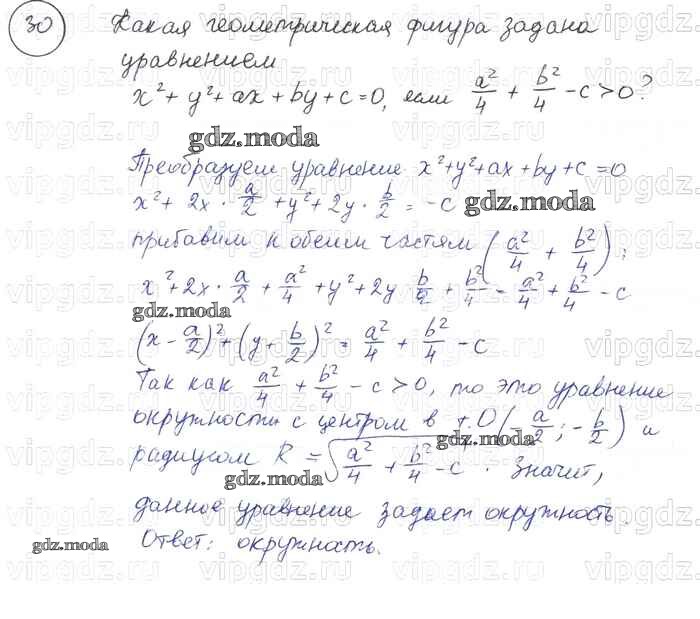 30 Какая геометрическая фигура задана
уравнением
x² + y² + ax + by + c = 0, если a²/4 + b²/4 - c > 0?
gdz.moda
Преобразуем уравнение x² + y² + ax + by + c = 0
x² + 2x · a/2 + y² + 2y · b/2 = -c
gdz.moda
прибавим к обеим частям (a²/4 + b²/4);
x² + 2x · a/2 + a²/4 + y² + 2y b/2 + b²/4 - a²/4 + b²/4 - c
gdz.moda
(x - a/2)² + (y + b/2)² = a²/4 + b²/4 - c
Так как a²/4 + b²/4 - c > 0, то это уравнение
окружности с центром в т. О (-a/2; -b/2) и
gdz.moda
радиусом R = √a²/4 + b²/4 - c. Значит,
gdz.moda
данное уравнение задает окружность.
gdz.moda
Ответ: окружность.
vipgdz